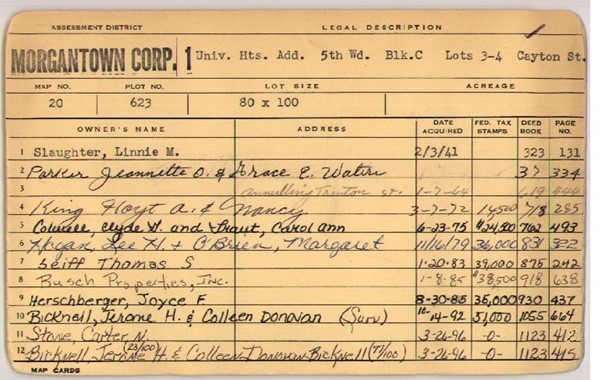 ASSESSMENT DISTRICT LEGAL DESCRIPTION
MORGANTOWN CORP. 1 Univ. Hts. Add. 5th Wd. Blk.C Lots 3-4 Cayton St.
MAP NO. PLOT NO. LOT SIZE ACREAGE
20 623 80 x 100
OWNER'S NAME ADDRESS DATE ACQUIRED FED. TAX STAMPS DEED BOOK PAGE NO.
1 Slaughter, Linnie M. 2/3/41 323 131
2 Parker Jeannette O. & Grace E. 37 334
3 annulling Trenton st. 1-7-64 619 444
4 King Hoyt A. & Nancy 3-7-72 718 285
5 Colwell, Clyde H. and Carol ann 6-23-75 $24,500 762 493
6 Hogan, Lee H. & O'Brien, Margaret 11/16/79 36,000 831 322
7 Seiff Thomas S 1-20-83 39,000 875 242
8 Busch Properties, Inc. 1-8-85 $38,500 918 638
9 Herschberger, Joyce F. 8-30-85 35,000 930 437
10 Bicknell, Jerome H. & Colleen Donovan (Surv) 10-14-92 51,000 1055 664
11 Stone, Carter N. 3-26-96 -0- 1123 412
12 Bicknell, Jerome (23/100) H & Colleen Donovan Bicknell (77/100) 3-26-96 -0- 1123 415
MAP CARDS